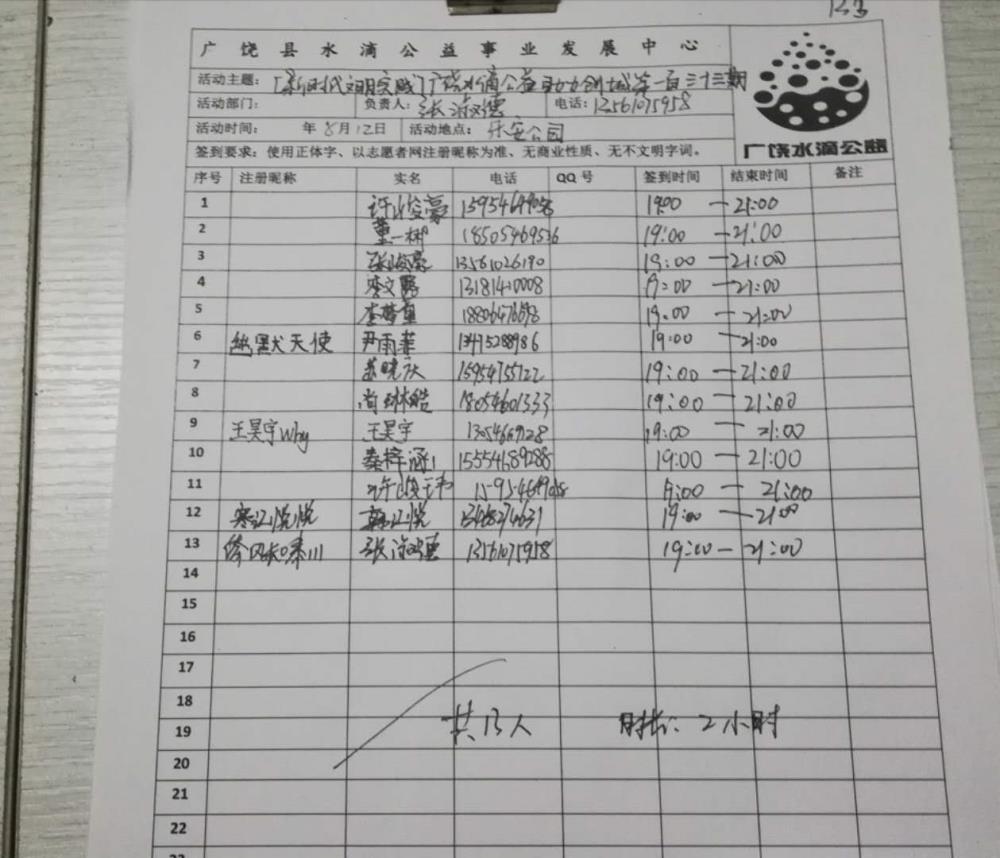 133
广饶县水滴公益事业发展中心
活动主题：【新时代文明实践】广饶水滴公益助力创城第一百三十三期
活动部门： 负责人：张淑德 电话：13561075958
活动时间： 年8月12日 活动地点：乐安公司
广饶水滴公益
签到要求：使用正体字、以志愿者网注册昵称为准、无商业性质、无不文明字词。
序号 注册昵称 实名 电话 QQ号 签到时间 结束时间 备注
1 19:00 — 21:00
2 董一彬 18505469536 19:00 — 21:00
3 张峻豪 13561026190 19:00 — 21:00
4 李文鹏 13181410008 19:00 — 21:00
5 李梦重 19:00 — 21:00
6 幽默天使 尹雨菲 13475288986 19:00 — 21:00
7 苏晓庆 15954755122 19:00 — 21:00
8 尚琳皓 18054601333 19:00 — 21:00
9 王昊宇Why 王昊宇 19:00 — 21:00
10 秦梓涵 15554689288 19:00 — 21:00
11 19:00 — 21:00
12 韩江悦 19:00 — 21:00
13 张淑德 13561075958 19:00 — 21:00
14
15
16
17
18
19 共13人 时长：2小时
20
21
22
23